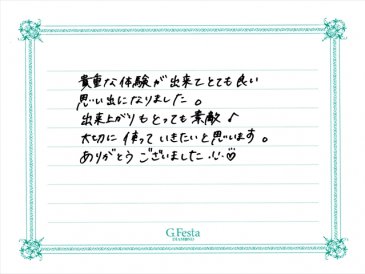 貴重な体験が出来てとても良い
思い出になりました。
出来上がりもとっても素敵♪
大切に使っていきたいと思います。
ありがとうございました.᎐.♡
G.Festa
DIAMOND